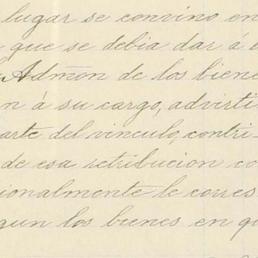 lugar se convino en
que se debia dar á
Admon de los biene
n á su cargo, adverti
arte del vinculo, contri-
de esa retribucion co
ionalmente le corres
gun los bienes en qu